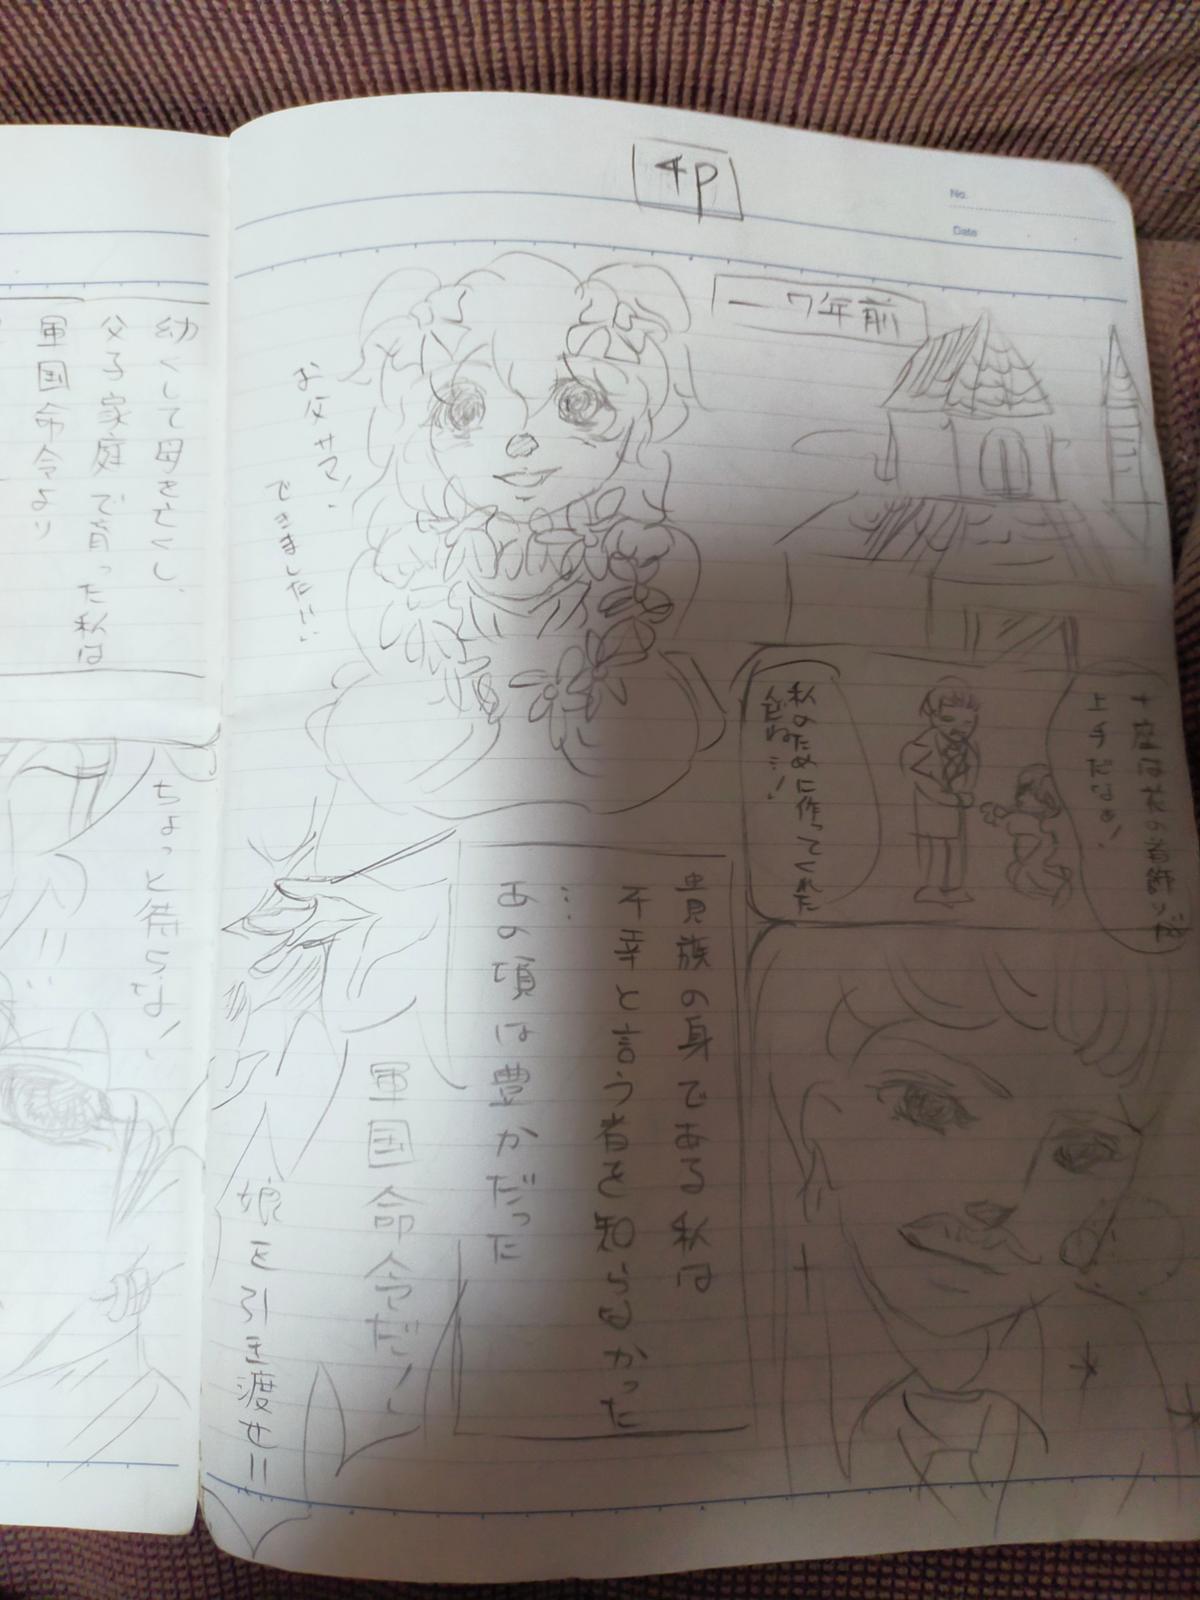 4P
No.
Date
一7年前
お父サマ、
できました!!!
上手だなぁ!
私のために作ってくれた
貴族の身である私は
不幸と言う者を知らなかった
…
あの頃は豊かだった
軍国命令だ!
娘を引き渡せ!!
幼くして母を亡くし、
父子家庭で育った私は
軍国命令より
ちょっと待らな!